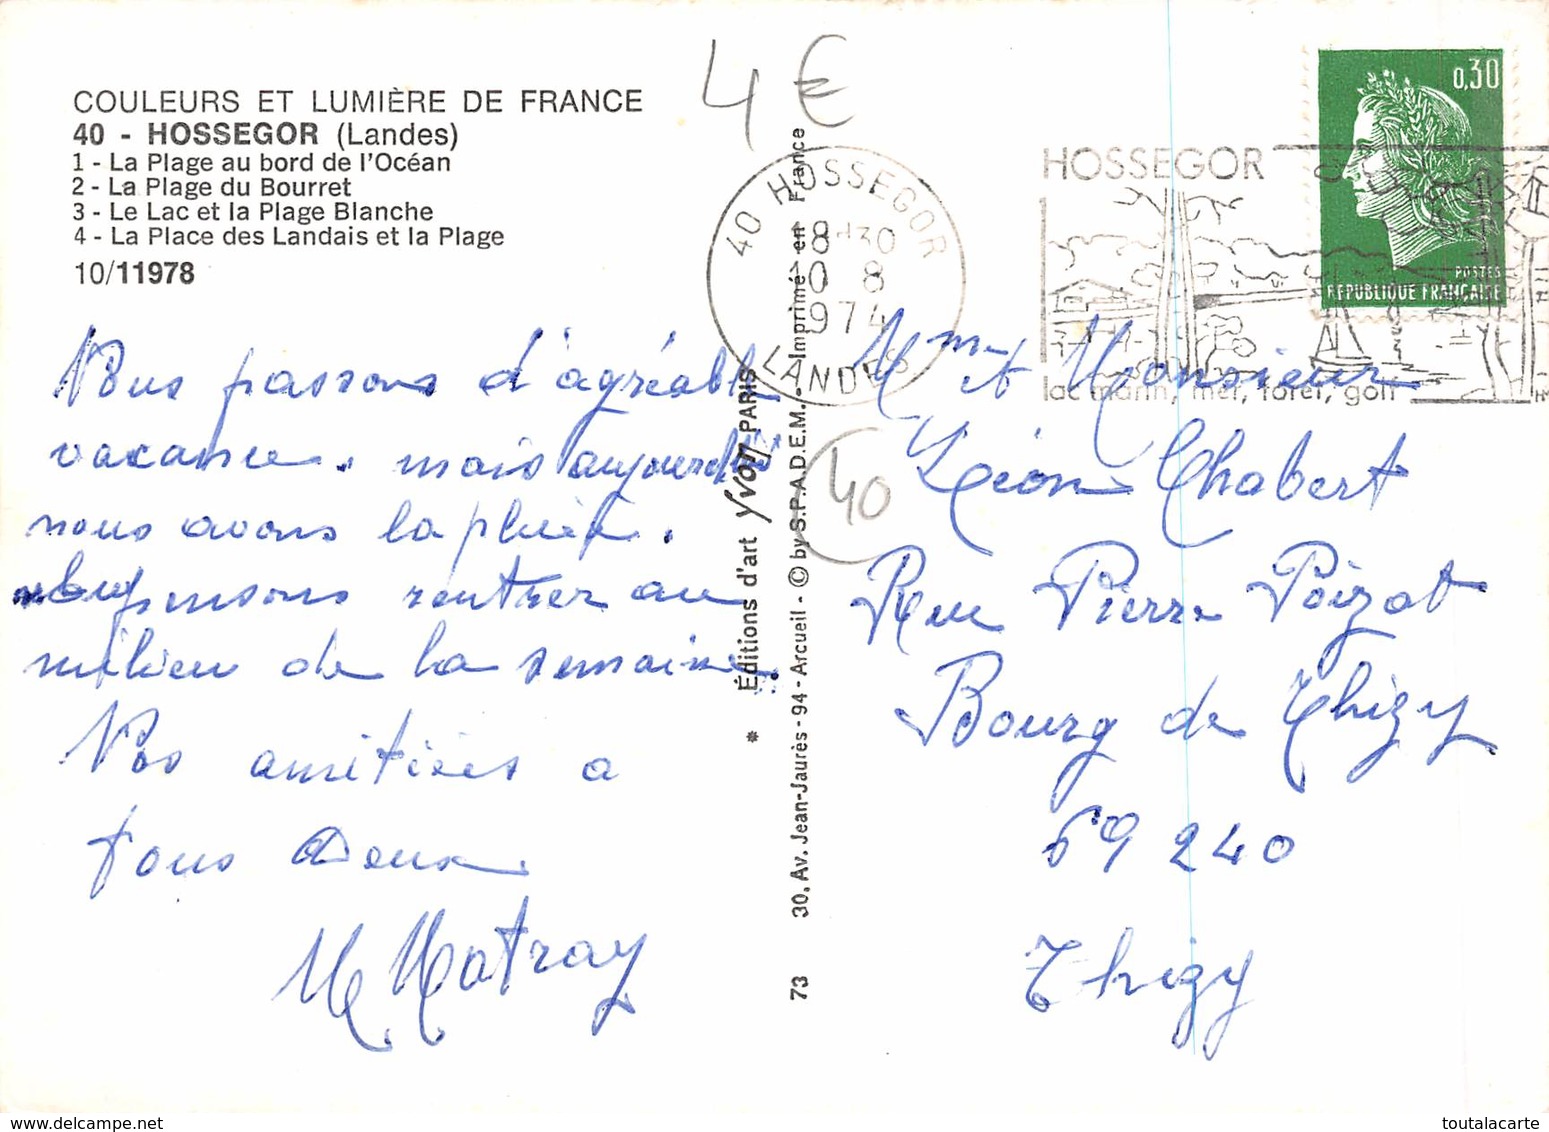 COULEURS ET LUMIÈRE DE FRANCE
40 - HOSSEGOR (Landes)
1 - La Plage au bord de l'Océan
2 - La Plage du Bourret
3 - Le Lac et la Plage Blanche
4 - La Place des Landais et la Plage
10/11978
4 €
40 HOSSEGOR
18-30
10 8
1974
LANDES
HOSSEGOR
lac marin, mer, forêt, golf
0,30
POSTES
REPUBLIQUE FRANÇAISE
Nous passons d'agréable
vacance. mais aujourd'hui
nous avons la pluie.
nous pensons rentrer au
milieu de la semaine.
Nos amitiés a
tous deux
M Matray
* Éditions d'art Yvon PARIS
73 30, Av. Jean-Jaurès - 94 - Arcueil - © by S.P.A.D.E.M. - Imprimé en France
40
Mme et Monsieur
Léon Chabert
Rue Pierre Poizat
Bourg de Thizy
69 240
Thizy
toutalacarte